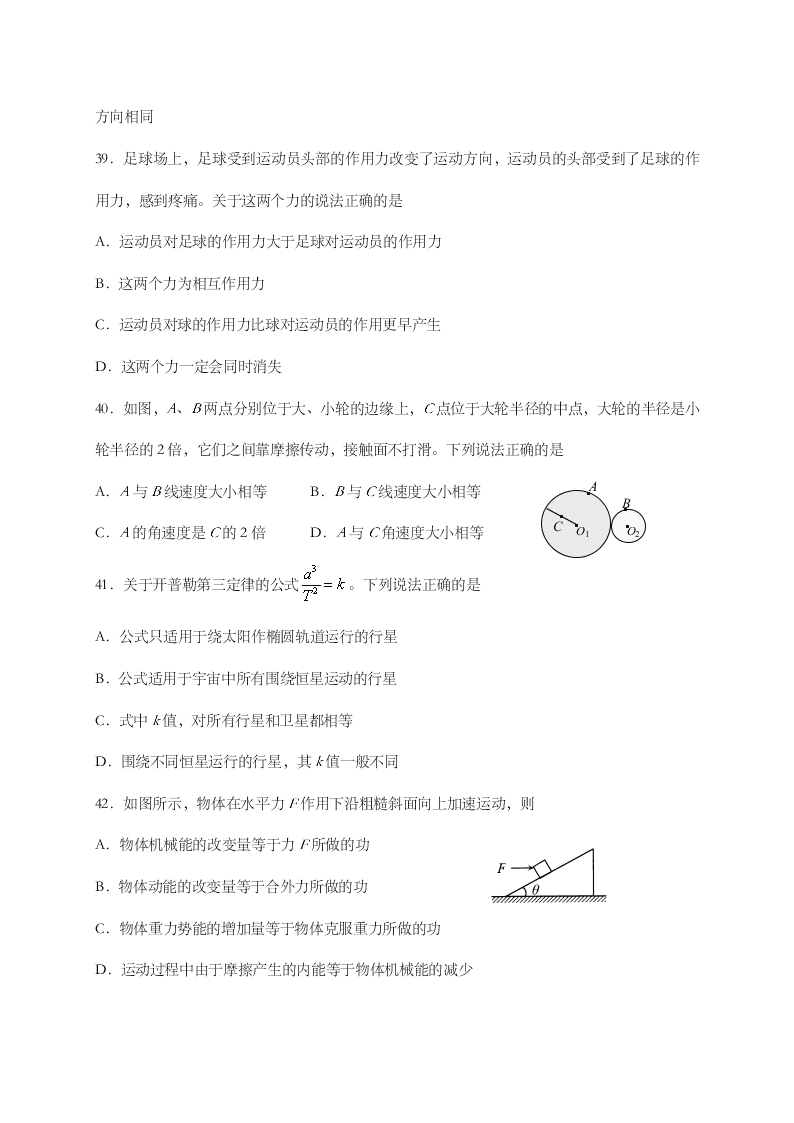 方向相同
39．足球场上，足球受到运动员头部的作用力改变了运动方向，运动员的头部受到了足球的作
用力，感到疼痛。关于这两个力的说法正确的是
A．运动员对足球的作用力大于足球对运动员的作用力
B．这两个力为相互作用力
C．运动员对球的作用力比球对运动员的作用更早产生
D．这两个力一定会同时消失
40．如图，A、B两点分别位于大、小轮的边缘上，C点位于大轮半径的中点，大轮的半径是小
轮半径的2倍，它们之间靠摩擦传动，接触面不打滑。下列说法正确的是
A．A与B线速度大小相等 B．B与C线速度大小相等
C．A的角速度是C的2倍 D．A与C角速度大小相等
A
B
C
O₁
O₂
41．关于开普勒第三定律的公式 a³/T² = k 。下列说法正确的是
A．公式只适用于绕太阳作椭圆轨道运行的行星
B．公式适用于宇宙中所有围绕恒星运动的行星
C．式中k值，对所有行星和卫星都相等
D．围绕不同恒星运行的行星，其k值一般不同
42．如图所示，物体在水平力F作用下沿粗糙斜面向上加速运动，则
A．物体机械能的改变量等于力F所做的功
B．物体动能的改变量等于合外力所做的功
C．物体重力势能的增加量等于物体克服重力所做的功
D．运动过程中由于摩擦产生的内能等于物体机械能的减少
F
θ